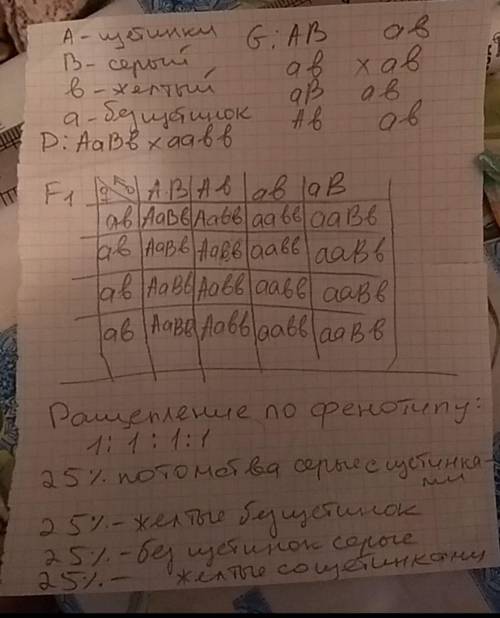 А - щетинки G: АВ ав
В - серый ав х ав
в - желтый аВ ав
а - без щетинок Ав ав
Р: АаВв х аавв
F1 ♀ ♂ АВ Ав ав аВ
ав АаВв Аавв аавв ааВв
ав АаВв Аавв аавв ааВв
ав АаВв Аавв аавв ааВв
ав АаВв Аавв аавв ааВв
Ращепление по фенотипу:
1:1:1:1
25% потомства серые с щетинка-
ми
25% - желтые без щетинок
25% - без щетинок серые
25% - желтые со щетинками